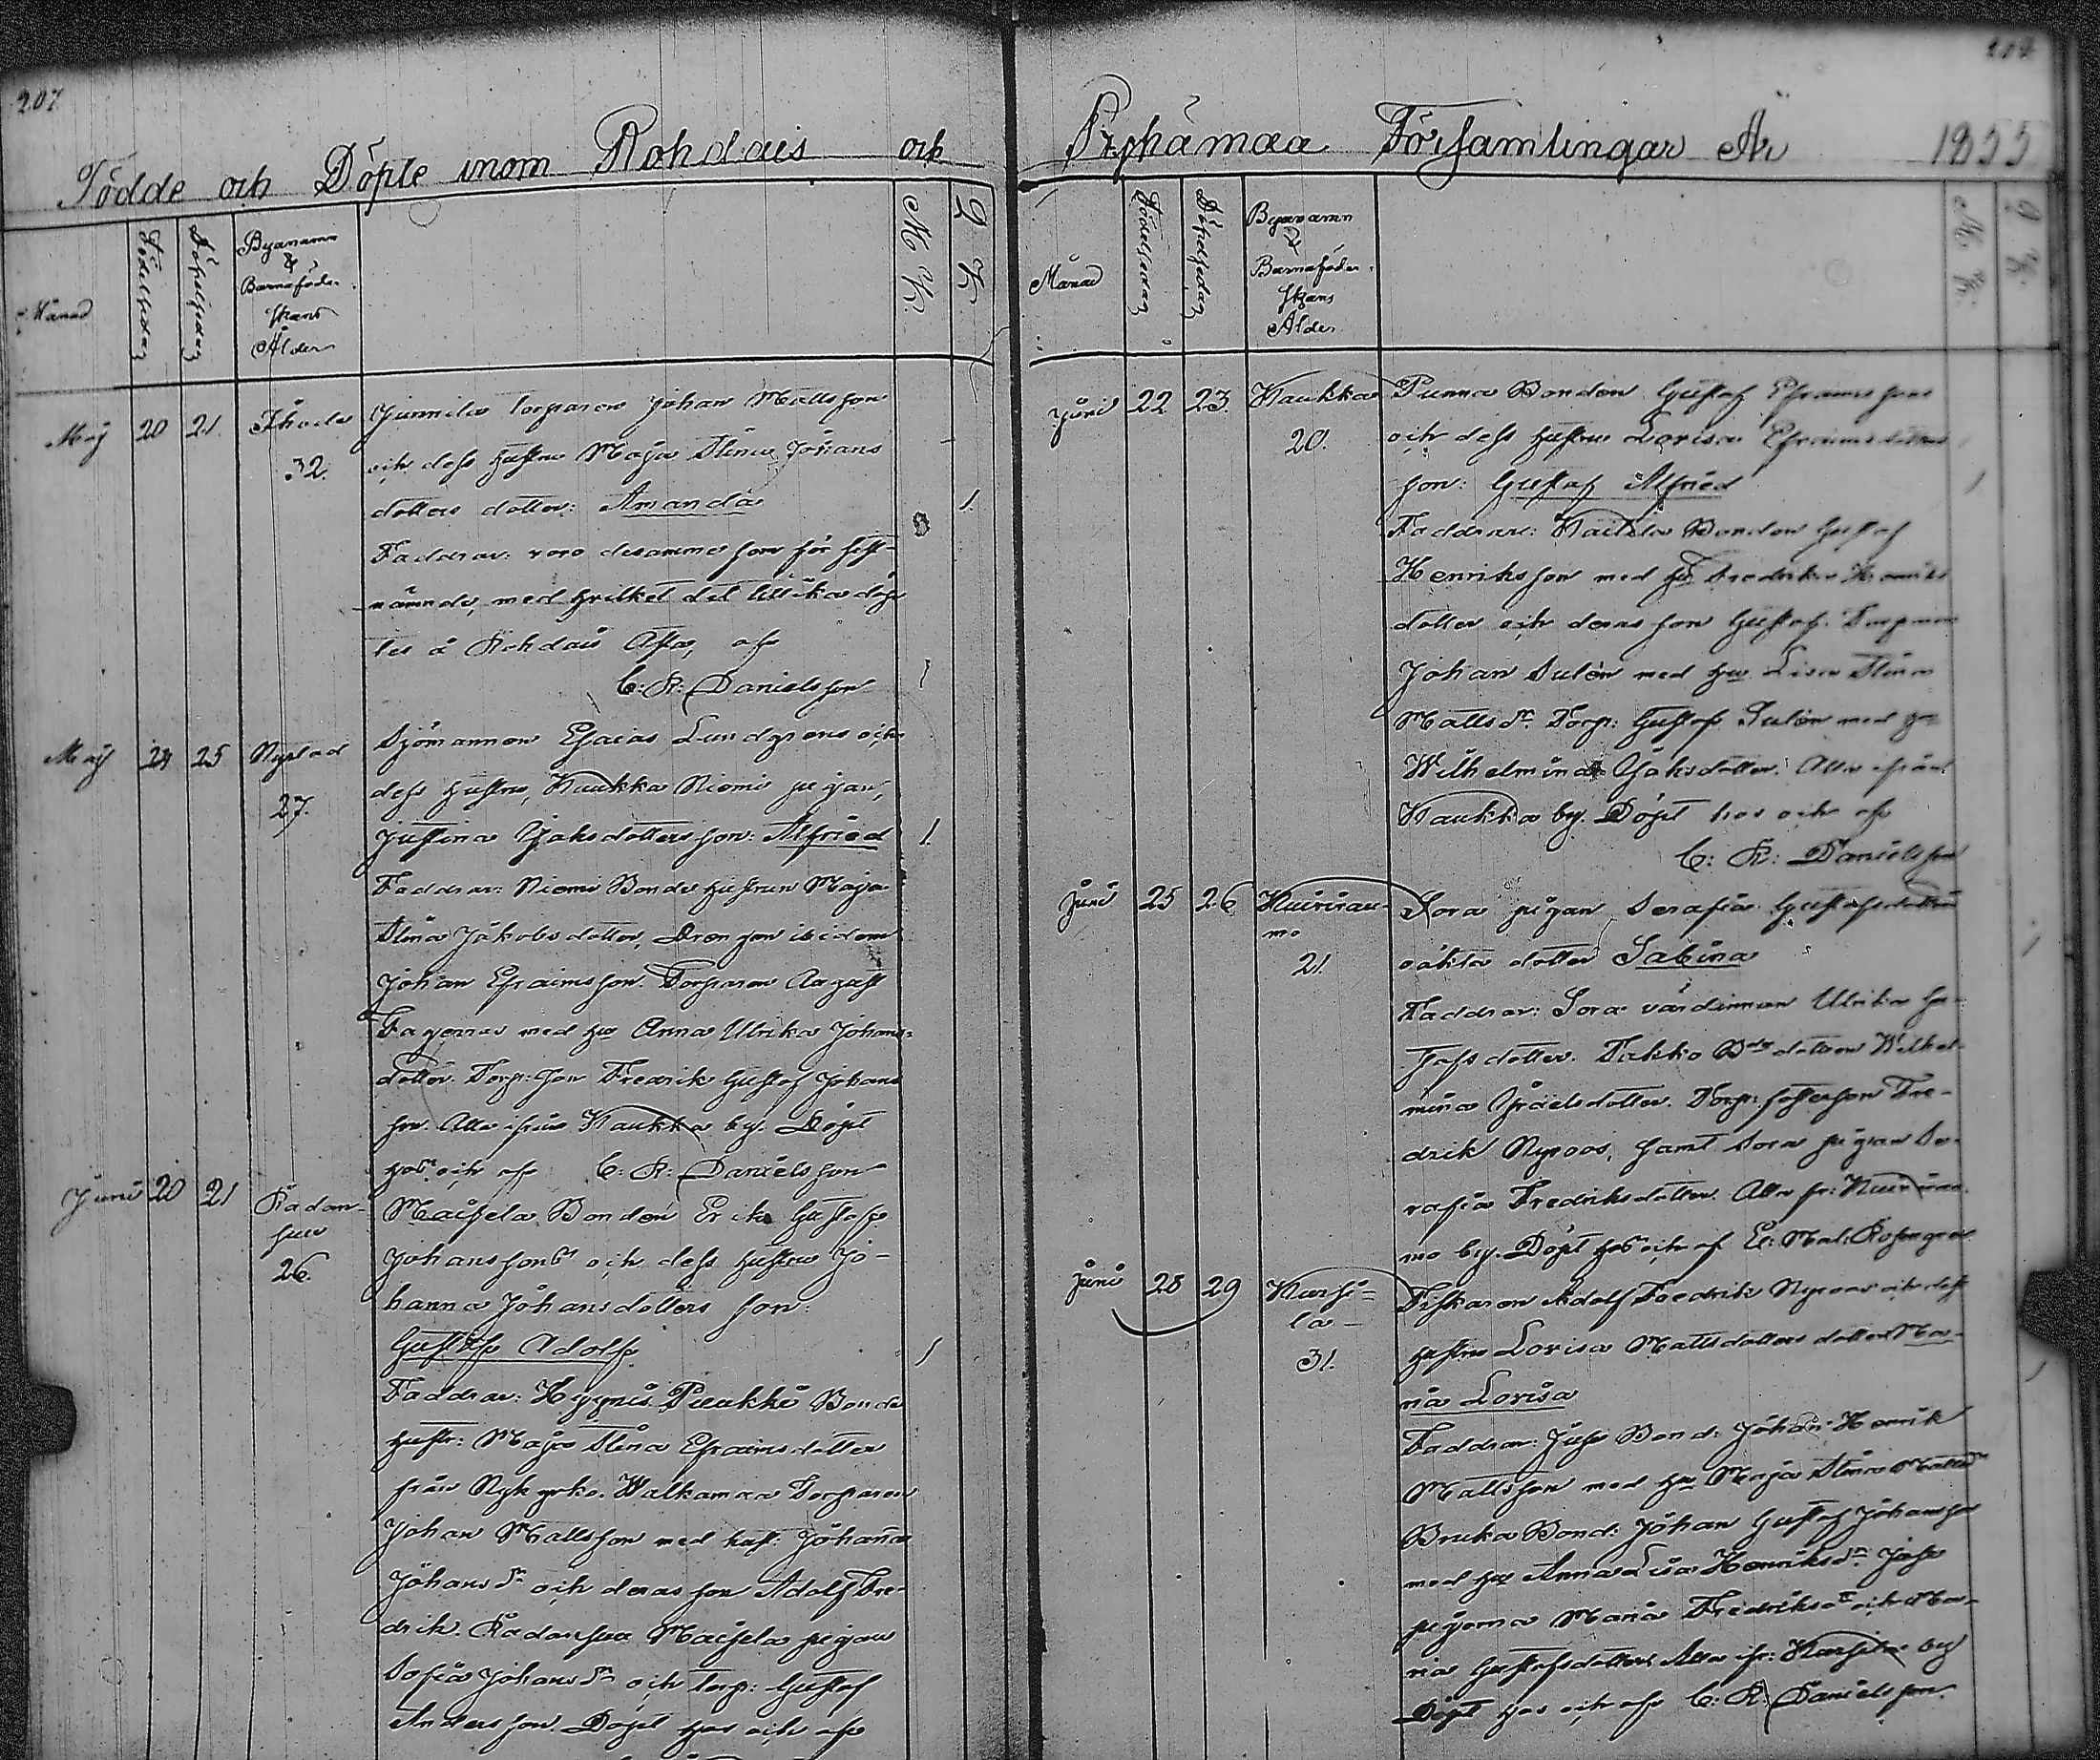 207
Födde och Döpte inom Rohdais och
Månad
Födelsedag
Döpelsedag
Byanamn
&
Barnaföder
skans
Ålder
M K.
Q K.
Maj 20 21.
32.
Junnila Torparen Johan Mattsson
och dess hustru Maja Stina Johans
dotters dotter: Amanda
1.
Faddrar: voro desamma som för sist-
nämnde, med hvilket det tillika döp
tes å Rohdais af
C: R: Danielsson
Maj 24 25 Nystad
27.
Sjömannen Esaias Lundgrens och
dess hustru, Kaukka Niemi pigan,
Justina Isaksdotters son: Alfried
1.
Faddrar: Niemi Bonde hustrun Maja
Stina Jakobsdotter, Drengen ibidem
Johan Efraimsson. Torparen August
Fagerros med hu Anna Ulrika Johans-
dotter. Torp: son Fredrik Gustaf Johans
son. Alla ifrån Kaukka by. Döpt
hos och af C: R: Danielsson
Juni 20 21
Kadan-
suu
26.
Maisela Bonden Erik Gustaf
Johanssons och dess hustru Jo-
hanna Johansdotters son:
Gustaf Adolf
1
Faddrar: Hyppis Peukki Bonde
hustr: Maja Stina Efraimsdotter
från Nykyrko. Walkamaa Torparen
Johan Mattsson med hust: Johanna
Johansdr och deras son Adolf Fre-
drik. Kadansuu Maisela pigan
Sofia Johansdr och Torp: Gustaf
Andersson. Döpt hos och af
Pyhämaa Församlingar År 1855
Månad
Födelsedag
Döpelsedag
Byanamn
&
Barnaföder
skans
Ålder
M K.
Q K.
Juni 22 23. Kaukka
20.
Punna Bonden Gustaf Efraimsson
och dess hustru Lovisa Efraimsdotters
son: Gustaf Alfried
1
Faddrar: Bonden Gustaf
Henriksson med hu Fredrika Henriks
dotter och deras son Gustaf. Torparen
Johan Sulén med hu Lisa Stina
Mattsdr. Torp: Gustaf Sulén med hu
Wilhelmina Isaksdotter. Alla ifrån
Kaukka by. Döpt hos och af
C: R: Danielsson
Juni 25 26
Kuivirau-
mo
21.
Sora pigan Serafia Gustafsdotters
oäkta dotter Sabina
1
Faddrar: Sora värdinnan Ulrika Gu-
stafsdotter. Takko Bde dottren Wilhel-
mina Israelsdotter. Torp: fosterson Fre-
drik Nyroos, samt Sora pigan Se-
rafia Fredriksdotter. Alla fr: Kuivirau-
mo by. Döpt hos och af Er: Mat: Rosengren
Juni 28 29
Kursi-
la
31.
Fiskaren Adolf Fredrik Nyroos och dess
hustru Lovisa Mattsdotters dotter Ma-
ria Lovisa
1
Faddrar: Juse Bond: Johan Henrik
Mattsson med hu Maja Stina Mattsdr
Bruka Bond: Johan Gustaf Johansson
med hu Anna Lisa Henriksdr Juse
pigorna Maria Fredriksdr och Ma-
ria Gustafsdotter. Alla ifr: Kursila by
Döpt hos och af C: R: Danielsson.